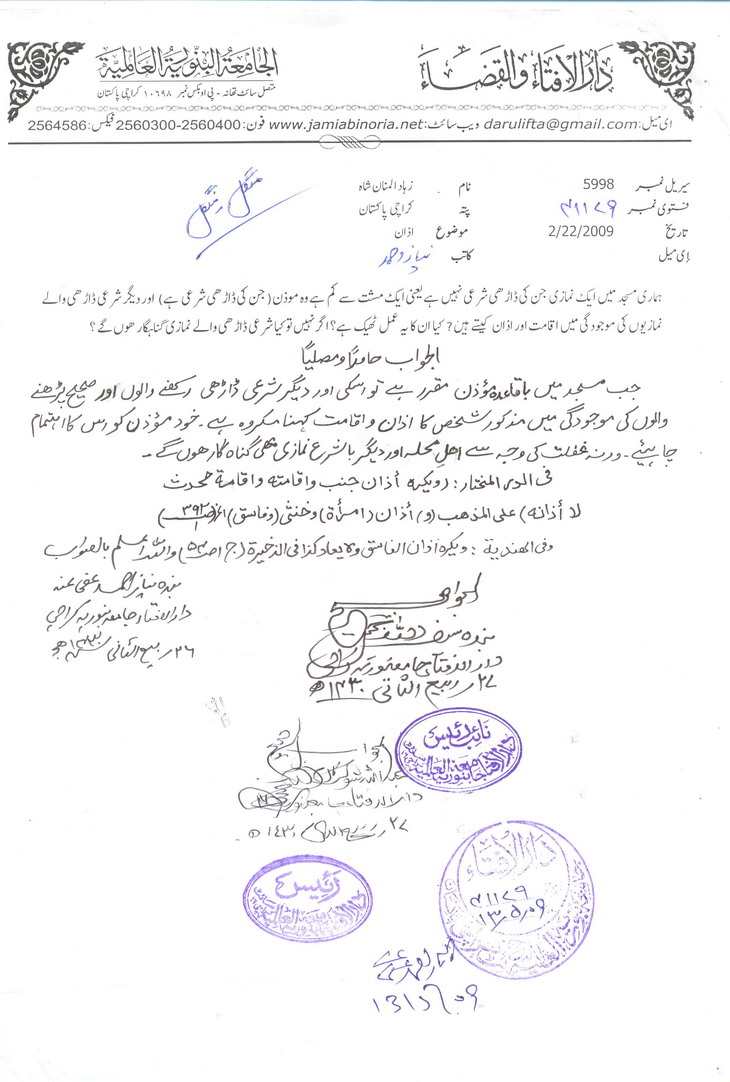 دار الافتاء والقضاء
الجامعة البنورية العالمية
متصل سائٹ تھانہ - پی او بکس نمبر ۱۰۶۹۸ کراچی پاکستان
ای میل: darulifta@gmail.com ویب سائٹ: www.jamiabinoria.net فون: 2560300-2560400 فیکس: 2564586
سیریل نمبر 5998 نام زہاد المنان شاہ
فتویٰ نمبر ۴۱۱۲۹ پتہ کراچی پاکستان
تاریخ 2/22/2009 موضوع اذان
ای میل کاتب نیاز احمد
ہماری مسجد میں ایک نمازی جن کی ڈاڑھی شرعی نہیں ہے یعنی ایک مشت سے کم ہے وہ موذن (جن کی ڈاڑھی شرعی ہے) اور دیگر شرعی ڈاڑھی والے
نمازیوں کی موجودگی میں اقامت اور اذان کہتے ہیں؟ کیا ان کا یہ عمل ٹھیک ہے؟ اگر نہیں تو کیا شرعی ڈاڑھی والے نمازی گناہگار ھوں گے؟
الجواب حامداً ومصلیاً
جب مسجد میں باقاعدہ مؤذن مقرر ہے تو اسکی اور دیگر شرعی ڈاڑھی رکھنے والوں اور صحیح پڑھنے
والوں کی موجودگی میں مذکور شخص کا اذان واقامت کہنا مکروہ ہے۔ خود مؤذن کو اس کا اہتمام
چاہیئے۔ ورنہ غفلت کی وجہ سے اھل محلہ اور دیگر باشرع نمازی بھی گناہ گار ھوں گے۔
فی الدر المختار: (ویکره أذان جنب واقامته واقامة محدث
لا أذانه) علی المذهب (و) أذان (امرأة) وخنثی (وفاسق) الخ (ص ۳۹۲)
وفی الهندیة: ویکره أذان الفاسق ولا یعاد کذا فی الذخیرة (ج۱ ص۵۴) واللہ اعلم بالصواب
بندہ نیاز احمد عفی عنہ
دار الافتاء جامعہ بنوریہ کراچی
۲۶ ربیع الثانی ۱۴۳۰ھ
الجواب صحیح
دار الافتاء جامعہ بنوریہ
۲۷ ربیع الثانی ۱۴۳۰ھ
نائب رئیس
الجواب صحیح
دار الافتاء جامعہ بنوریہ
رئیس
دار الافتاء
۴۱۱۲۹